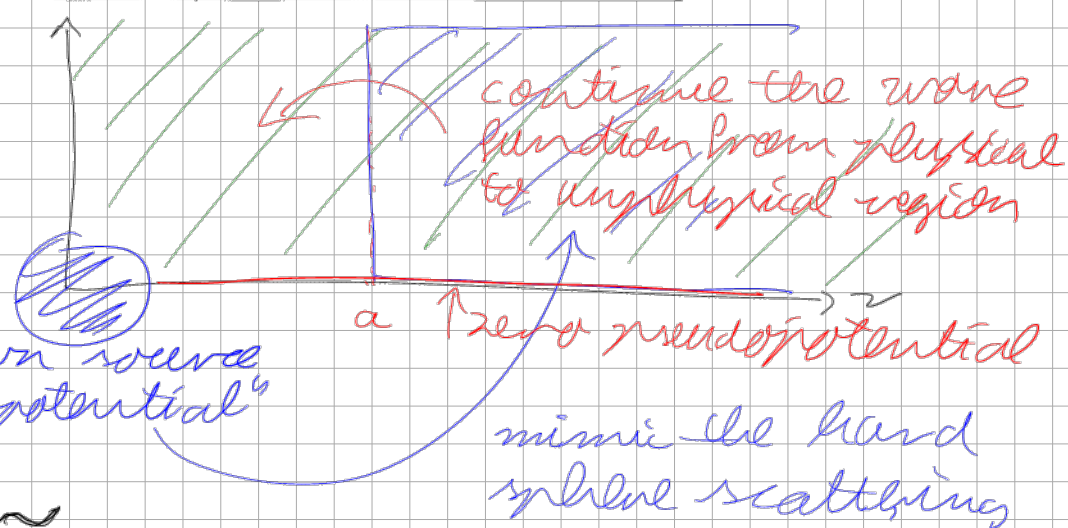 continue the wave
function from physical
to unphysical region
r
a
zero pseudopotential
on source
potential"
mimic the hard
sphere scattering